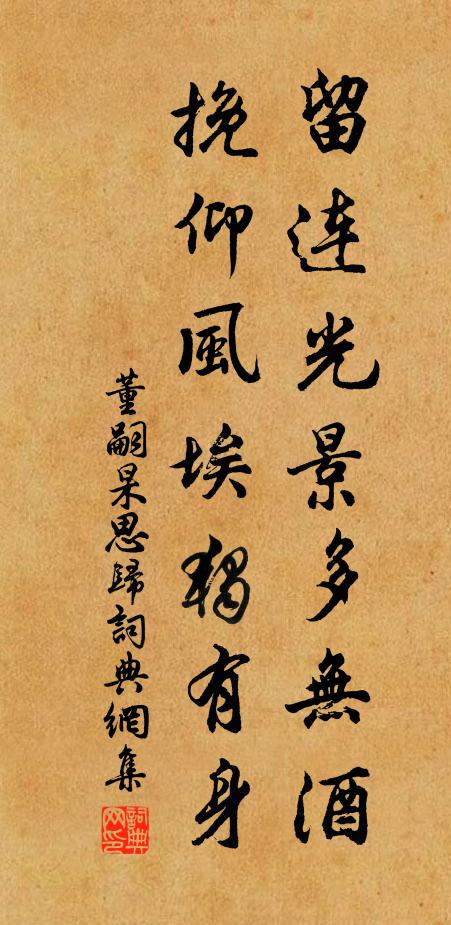 留連光景多無酒
挽仰風埃獨有身
董嗣杲思歸詞典網集
詞典網印